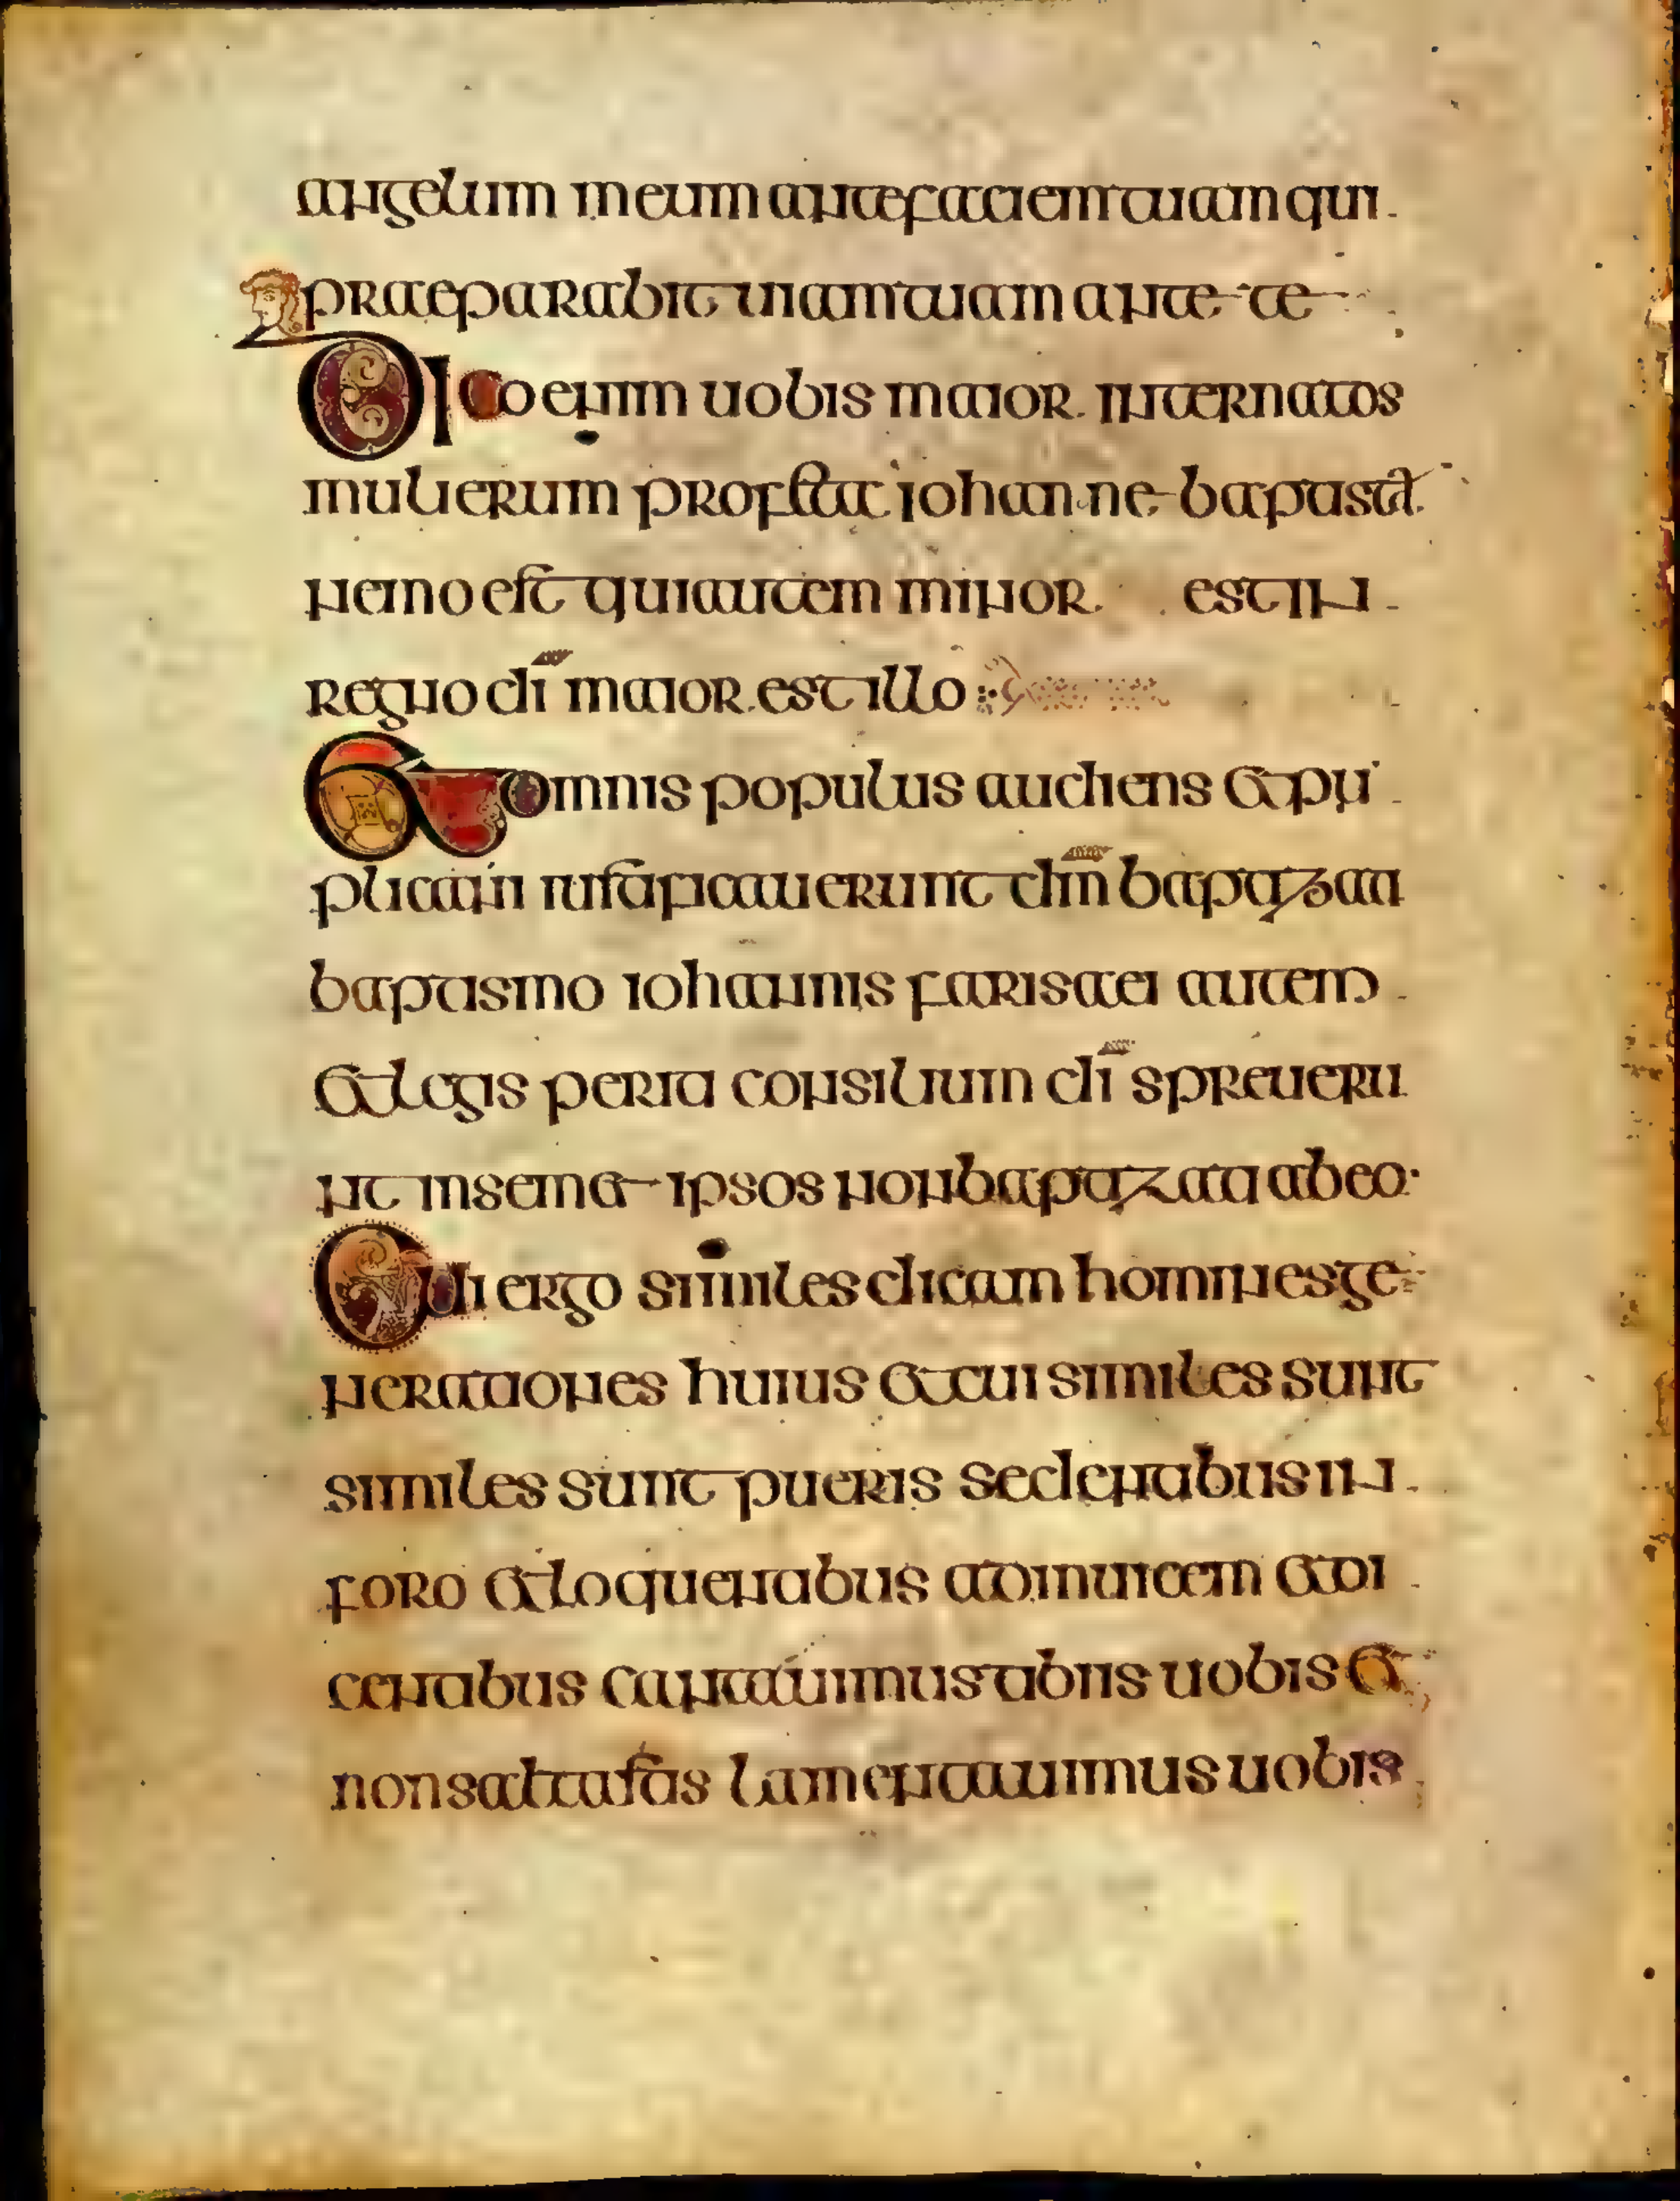 angelum meum ante faciem tuam qui
praeparabit uiam tuam ante te
Dico enim uobis maior inter natos
mulierum profeta iohanne baptista
nemo est qui autem minor est in
regno dī maior est illo
Et omnis populus audiens et pu
plicani iustificauerunt dīm baptizati
baptismo iohannis farisaei autem
et legis periti consilium dī spreueru
nt in semet ipsos non baptizati ab eo
Cui ergo similes dicam homines ge
nerationes huius et cui similes sunt
similes sunt pueris sedentibus in
foro et loquentibus adinuicem et di
centibus cantauimus tibiis uobis et
non saltastis lamentauimus uobis